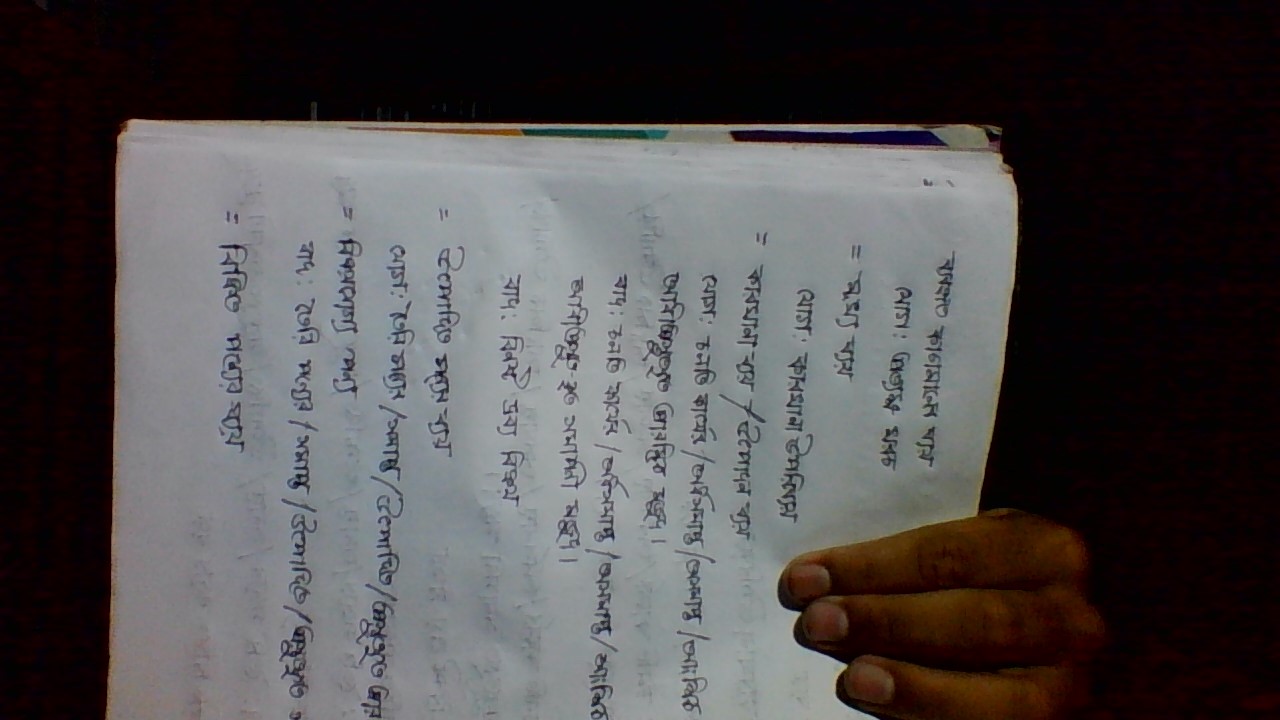 ব্যবহৃত কাঁচামালের ব্যয়
যোগ: প্রত্যক্ষ খরচ
= মূখ্য ব্যয়
যোগ: কারখানা উপরিব্যয়
= কারখানা ব্যয় / উৎপাদন ব্যয়
যোগ: চলতি কার্যের / অর্ধসমাপ্ত / অসমাপ্ত / আংশিক
প্রারম্ভিক মজুদ।
বাদ: চলতি কার্যের / অর্ধসমাপ্ত / অসমাপ্ত / আংশিক
সমাপনী মজুদ।
বাদ: বিনষ্ট দ্রব্য বিক্রয়
= উৎপাদিত পণ্যের ব্যয়
যোগ: তৈরি পণ্যের / সমাপ্ত / উৎপাদিত / প্রস্তুতকৃত প্রার
= বিক্রয়যোগ্য পণ্য
বাদ: তৈরি পণ্যের / সমাপ্ত / উৎপাদিত / প্রস্তুতকৃত স
= বিক্রিত পণ্যের ব্যয়